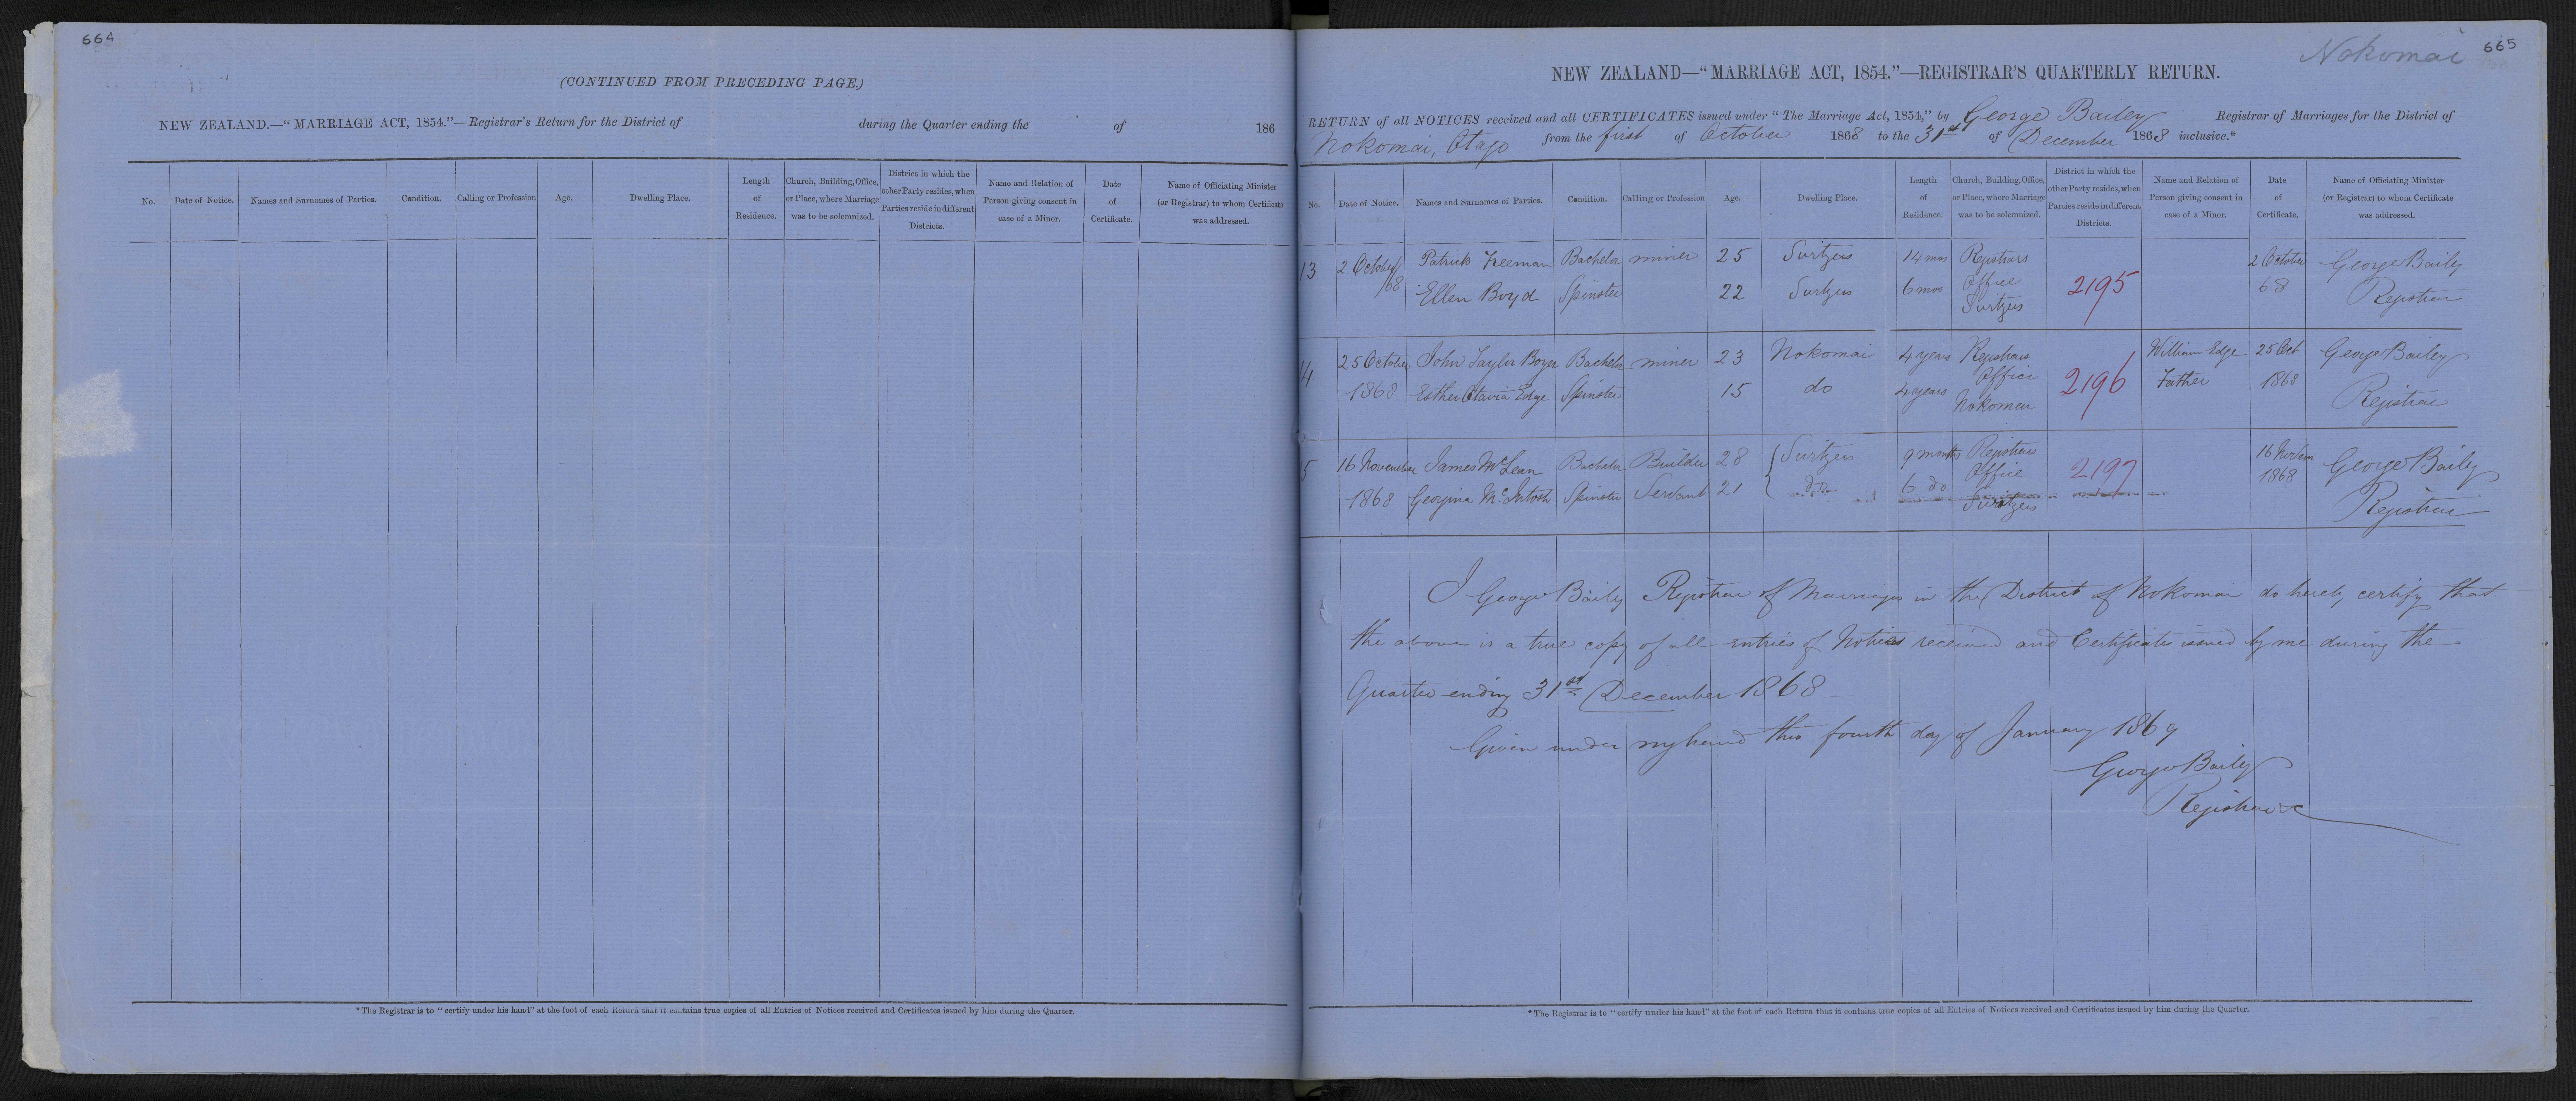 664
(CONTINUED FROM PRECEDING PAGE.)
NEW ZEALAND.—"MARRIAGE ACT, 1854."—Registrar's Return for the District of during the Quarter ending the of 186
No. Date of Notice. Names and Surnames of Parties. Condition. Calling or Profession Age. Dwelling Place. Length of Residence. Church, Building, Office, or Place, where Marriage was to be solemnized. District in which the other Party resides, when Parties reside in different Districts. Name and Relation of Person giving consent in case of a Minor. Date of Certificate. Name of Officiating Minister (or Registrar) to whom Certificate was addressed.
* The Registrar is to "certify under his hand" at the foot of each Return that it contains true copies of all Entries of Notices received and Certificates issued by him during the Quarter.
Nokomai 665
NEW ZEALAND—"MARRIAGE ACT, 1854."—REGISTRAR'S QUARTERLY RETURN.
RETURN of all NOTICES received and all CERTIFICATES issued under "The Marriage Act, 1854," by George Bailey Registrar of Marriages for the District of
Nokomai, Otago from the first of October 1868 to the 31st of December 1868 inclusive.*
No. Date of Notice. Names and Surnames of Parties. Condition. Calling or Profession Age. Dwelling Place. Length of Residence. Church, Building, Office, or Place, where Marriage was to be solemnized. District in which the other Party resides, when Parties reside in different Districts. Name and Relation of Person giving consent in case of a Minor. Date of Certificate. Name of Officiating Minister (or Registrar) to whom Certificate was addressed.
13 2 October/68 Patrick Freeman Bachelor miner 25 Switzers 14 mos Registrars 2 October George Bailey
Ellen Boyd Spinster 22 Switzers 6 mos Office Switzers 2195 68 Registrar
14 25 October John Taylor Boyer Bachelor miner 23 Nokomai 4 years Registrars William Edge 25 Oct George Bailey
1868 Esther Otavia Edge Spinster 15 do 4 years Office Nokomai 2196 Father 1868 Registrar
5 16 November James McLean Bachelor Builder 28 Switzers 9 months Registrars 2197 George Bailey
1868 Georgina McIntosh Spinster Servant 21 do 6 do Office Switzers 1868 Registrar
I George Bailey Registrar of Marriages in the District of Nokomai do hereby certify that
the above is a true copy of all entries of Notices received and Certificates issued by me during the
Quarter ending 31st December 1868
Given under my hand this fourth day of January 1869
George Bailey
Registrar
* The Registrar is to "certify under his hand" at the foot of each Return that it contains true copies of all Entries of Notices received and Certificates issued by him during the Quarter.